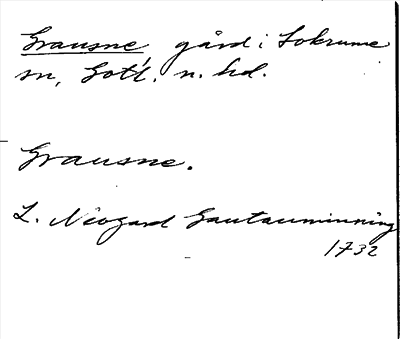 Grausne, gård i Lokrume
sn, Gotl. n. hd.
Grausne.
L. Neogard Gautauminning
1732